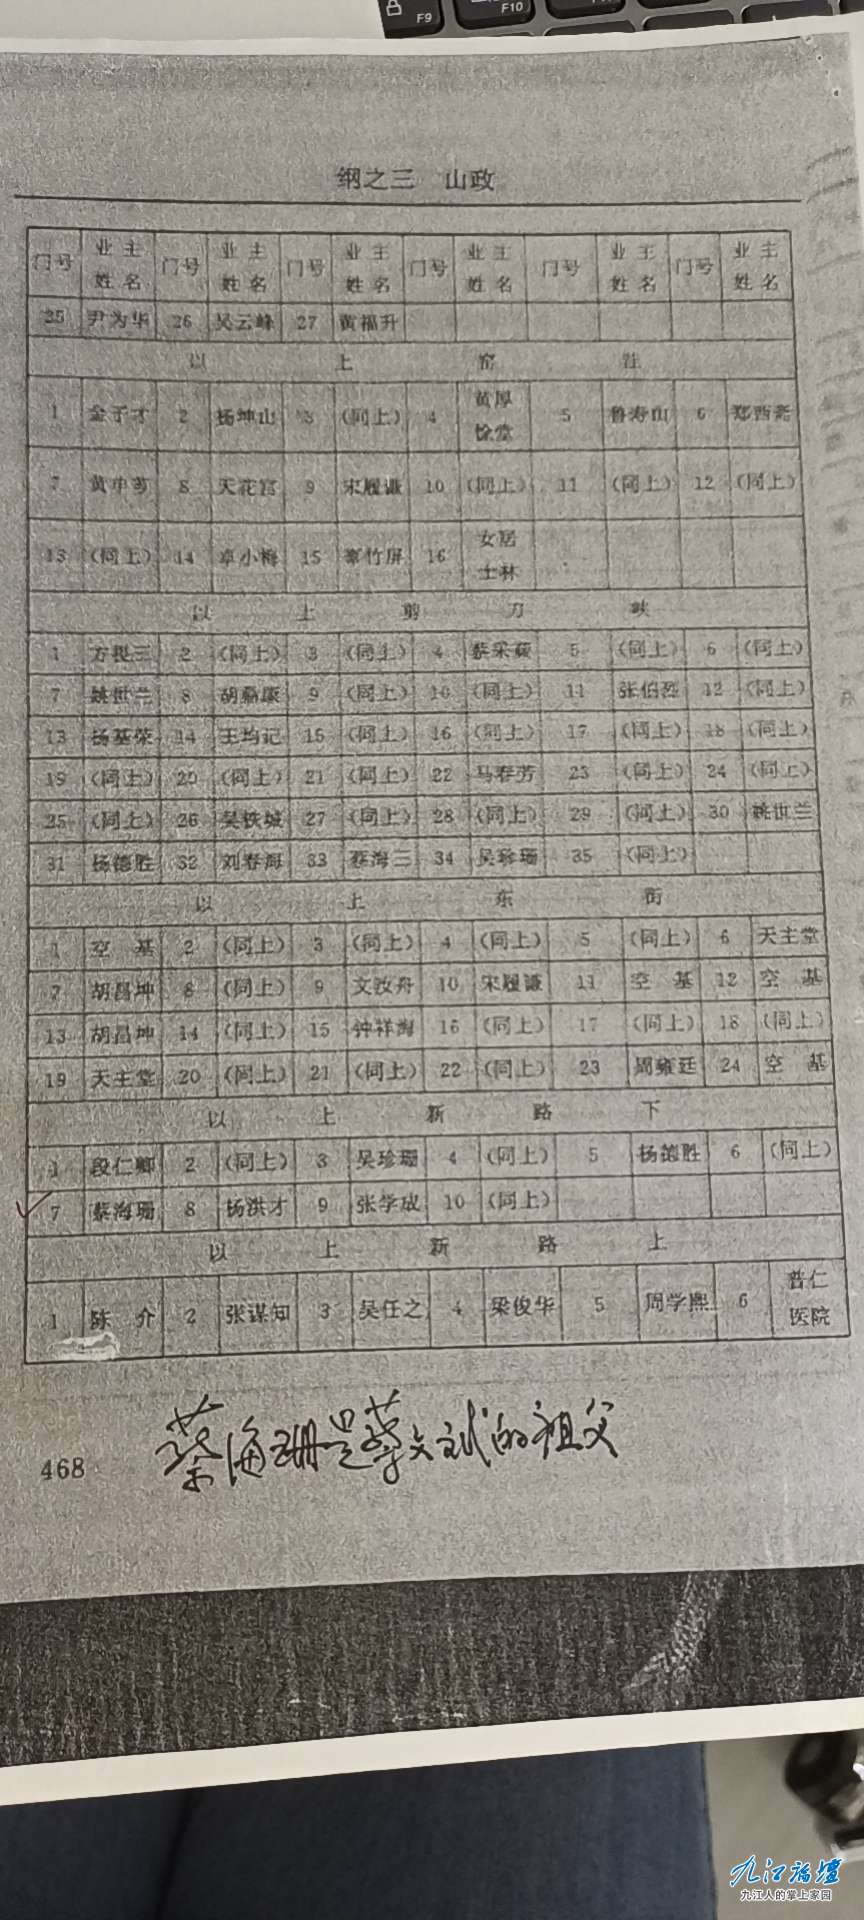 F9
F10
纲之三 山政
门号 业主姓名 门号 业主姓名 门号 业主姓名 门号 业主姓名 门号 业主姓名 门号 业主姓名
25 尹为华 26 吴云峰 27 黄福升
以上窑洼
1 金子才 2 杨坤山 3 (同上) 4 黄厚馀堂 5 鲁寿山 6 郑西斋
7 8 天花宫 9 宋履谦 10 (同上) 11 (同上) 12 (同上)
13 (同上) 14 卓小梅 15 竹屏 16 女居士林
以上剪刀峡
1 方畏三 2 (同上) 3 (同上) 4 蔡采蘋 5 (同上) 6 (同上)
7 姚世兰 8 胡鼎康 9 (同上) 10 (同上) 11 张伯烈 12 (同上)
13 杨基荣 14 王均记 15 (同上) 16 (同上) 17 (同上) 18 (同上)
19 (同上) 20 (同上) 21 (同上) 22 马春芳 23 (同上) 24 (同上)
25 (同上) 26 吴铁城 27 (同上) 28 (同上) 29 (同上) 30 姚世兰
31 杨德胜 32 刘春海 33 蔡海三 34 吴珍珊 35 (同上)
以上东街
1 空基 2 (同上) 3 (同上) 4 (同上) 5 (同上) 6 天主堂
7 胡昌坤 8 (同上) 9 文汝舟 10 宋履谦 11 空基 12 空基
13 胡昌坤 14 (同上) 15 钟祥海 16 (同上) 17 (同上) 18 (同上)
19 天主堂 20 (同上) 21 (同上) 22 (同上) 23 周雍廷 24 空基
以上新路下
1 段仁卿 2 (同上) 3 吴珍珊 4 (同上) 5 杨德胜 6 (同上)
7 蔡海珊 8 杨洪才 9 张学成 10 (同上)
以上新路上
1 陈介 2 张谋知 3 吴任之 4 梁俊华 5 周学熙 6 普仁医院
468
蔡海珊是蔡文斌的祖父
九江论坛
九江人的掌上家园